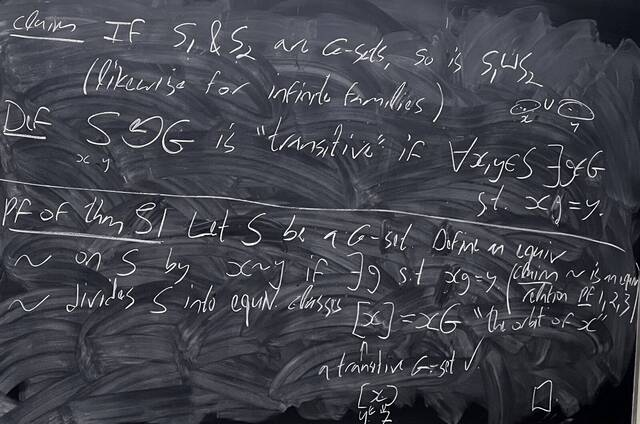 claim If S₁ & S₂ are G-sets, so is S₁ ⊔ S₂
(likewise for infinite families)
x ∪ y
Def S ↻ G is "transitive" if ∀x,y∈S ∃g∈G
x y
s.t. xg=y.
Pf of thm 81 Let S be a G-set. Define an equiv
~ on S by x~y if ∃g s.t xg=y (claim ~ is an equiv
relation Pf 1,2,3)
~ divides S into equiv classes [x]=xG "the orbit of x"
a transitive G-set ✓.
[x]
□